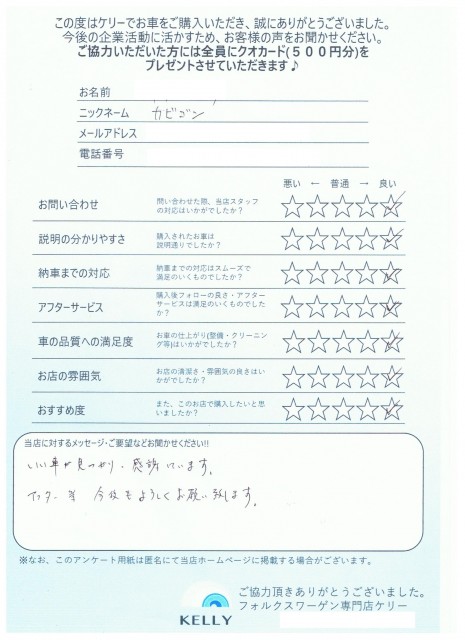 この度はケリーでお車をご購入いただき、誠にありがとうございました。
今後の企業活動に活かすため、お客様の声をお聞かせください。
ご協力いただいた方には全員にクオカード(５００円分)を
プレゼントさせていただきます♪
お名前
ニックネーム カビゴン
メールアドレス
電話番号
悪い ← 普通 → 良い
お問い合わせ 問い合わせた際、当店スタッフ
の対応はいかがでしたか？
説明の分かりやすさ 購入されたお車は
説明通りでしたか？
納車までの対応 納車までの対応はスムーズで
満足のいくものでしたか？
アフターサービス 購入後フォローの良さ・アフター
サービスは満足のいくものでした
か？
車の品質への満足度 お車の仕上がり(整備・クリーニン
グ等)はいかがでしたか？
お店の雰囲気 お店の清潔さ・雰囲気の良さはい
かがでしたか？
おすすめ度 また、このお店で購入したいと思
いましたか？
当店に対するメッセージ・ご要望などお聞かせください!!
いい車が見つかり、感謝しています。
アフター等 今後もよろしくお願い致します。
※なお、このアンケート用紙は匿名にて当店ホームページに掲載する場合がございます。
ご協力頂きありがとうございました。
フォルクスワーゲン専門店ケリー
KELLY